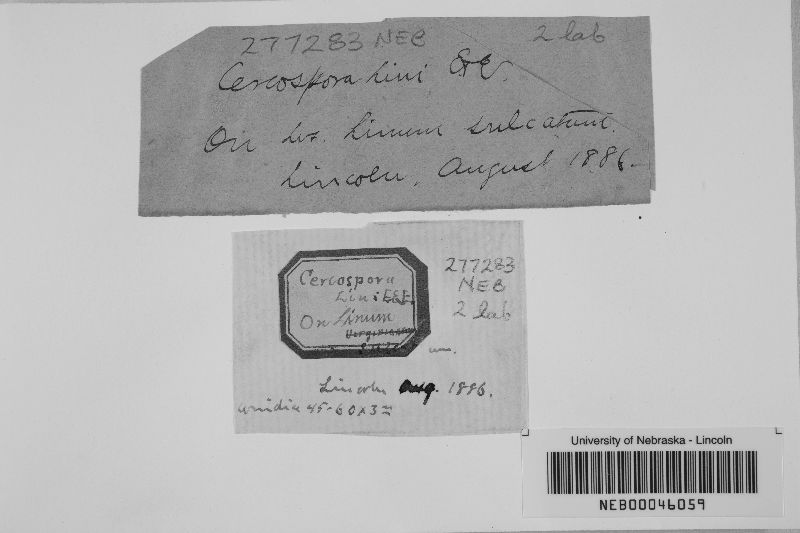 277283 NEB 2 lab
Cercospora Lini E&E.
On lvs. Linum sulcatum.
Lincoln, August 1886.
Cercospora
Lini E&E.
On Linum
um.
277283
NEB
2 lab
Lincoln Aug. 1886.
conidia 45-60x3
University of Nebraska - Lincoln
NEB00046059